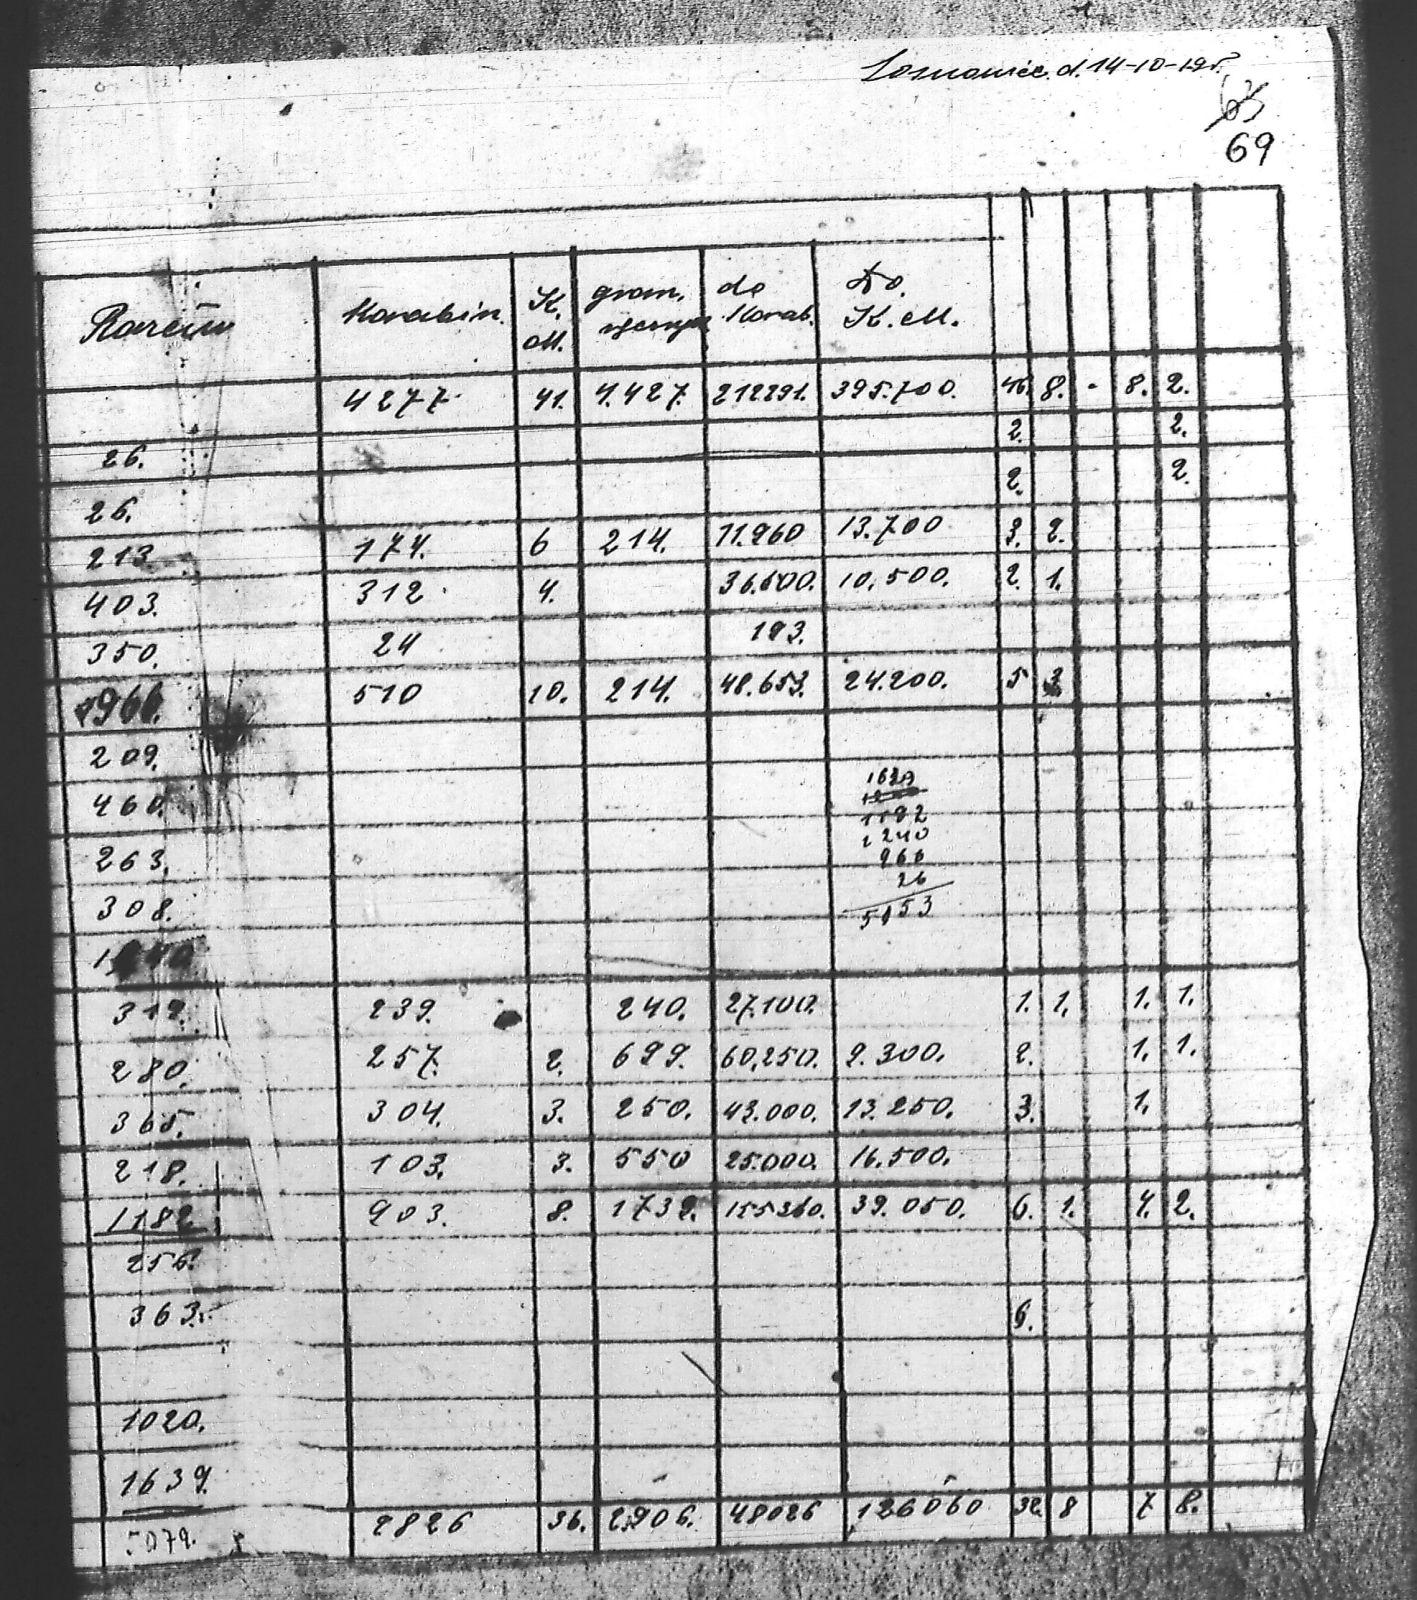 Sosnowiec d. 14-10-19r.
69
Razem Karabin. K. M. gran. ręcznych do Karab. Do K. M.
4277. 41. 1.427. 212291. 395.700. 46. 8. - 8. 2.
26. 2. 2.
26. 2. 2.
213. 174. 6 214. 11.960 13.700 3. 2.
403. 312. 4. 36.500. 10.500. 2. 1.
350. 24 193.
966. 510 10. 214. 48.653. 24.200. 5 3
209.
460.
263.
308.
1240
319. 239. 240. 27.100. 1. 1. 1. 1.
280. 257. 2. 699. 60,250. 9.300. 2. 1. 1.
365. 304. 3. 250. 43.000. 13.250. 3. 1.
218. 103. 3. 550 25.000. 16.500.
1182 903. 8. 1739. 155350. 39.050. 6. 1. 4. 2.
256.
363. 6.
1020.
1639.
5079. 2826 36. 2.906. 48026 126060 32. 8 7 8.
1639
1182
1240
966
26
5053